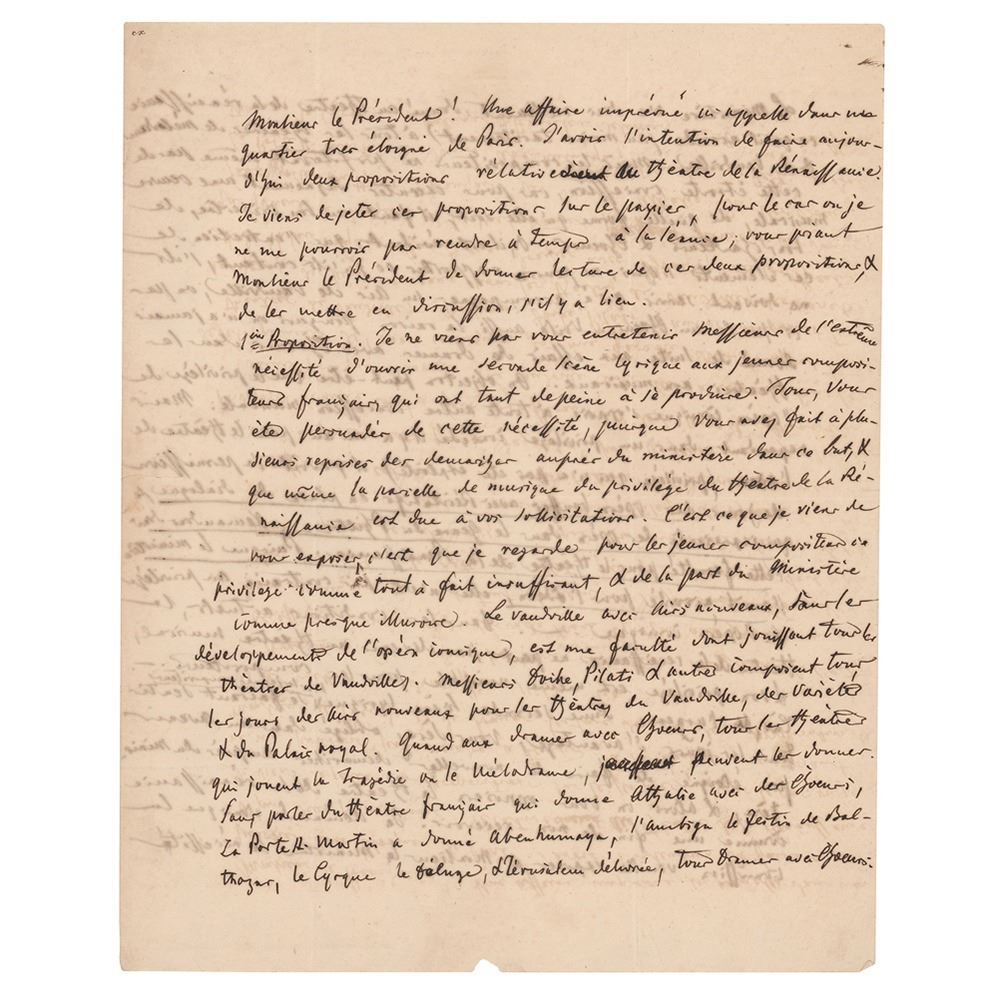 Monsieur le Président! Une affaire imprévue m'appelle dans un
quartier tres éloigné de Paris. J'avois l'intention de faire aujour-
d'hui deux propositions rélativement au théatre de la Rénaissance.
Je viens de jeter ces propositions sur le papier, pour le cas ou je
ne me pourrois pas rendre à temps à la séance; vous priant
Monsieur le Président de donner lecture de ces deux propositions, &
de les mettre en discussion, s'il y a lieu.
1ère Proposition. Je ne viens pas vous entretenir Messieurs de l'extrême
nécessité d'ouvrir une seconde scène lyrique aux jeunes composi-
teurs français, qui ont tant de peine à se produire. Tous, vous
ête persuadés de cette nécessité, puisque vous avez fait à plu-
sieurs reprises des demarches auprés du ministère dans ce but, &
que même la parcelle de musique du privilège du théatre de la Ré-
naissance est due à vos sollicitations. C'est ce que je viens de
vous exposer, c'est que je regarde pour les jeunes compositeurs ce
privilège comme tout à fait insuffisant, & de la part du Ministère
comme presque illusoire. Le vaudville avec airs nouveaux, sans les
développements de l'opéra comique, est une faculté dont jouissent tous les
théatres de Vaudvilles. Messieurs Doche, Pilati & autres composent tous
les jours des airs nouveaux pour les théatres du Vaudville, des Variétés
& du Palais royal. Quand aux drames avec Choeurs, tous les théatres
qui jouent la tragédie ou le Mélodrame, peuvent les donner.
Sans parler du théatre français qui donne Athalie avec des Choeurs,
La Porte St. Martin a donné Abenhumaya, l'ambigu le Festin de Bal-
thazar, le Cyrque le Déluge, & Jérusalem délivrée, tous Drames avec Choeurs.